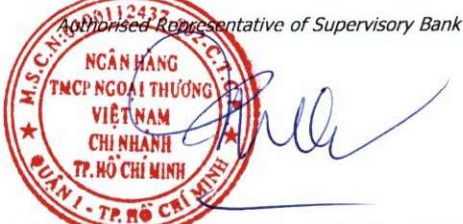 Authorised Representative of Supervisory Bank
NGÂN HÀNG
TMCP NGOẠI THƯƠNG
VIỆT NAM
CHI NHÁNH
TP. HỒ CHÍ MINH
QUẬN 1 - TP. HỒ CHÍ MINH